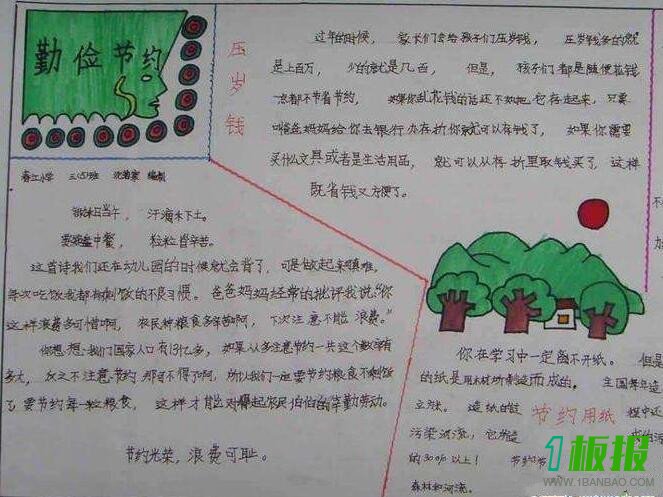 勤俭节约
春江小学 三(5)班 编制
锄禾日当午，汗滴禾下土。
粒粒皆辛苦。
这首诗我们还在幼儿园的时候就会背了，可是做起来真难，
每次吃饭我都有剩饭的不良习惯。爸爸妈妈经常的批评我说："你
这样浪费多可惜啊，农民种粮食多辛苦啊，下次注意不能浪费。"
你想想我们国家人口有13亿多，如果人人多注意节约一共这个数字有
多大，反之不注意节约那可不得了啊，所以我们一定要节约粮食不剩饭
了要节约每一粒粮食，这样才能对得起农民伯伯的辛勤劳动。
节约光荣，浪费可耻。
压岁钱
过年的时候，家长们会给孩子们压岁钱，压岁钱多的就
是上百万，少的就是几百，但是，孩子们都是随便花钱
一点都不节省节约，如果你乱花钱的话还不如把它存起来，只要
叫爸爸妈妈给你去银行办存折你就可以存钱了，如果你需要
买什么文具或者是生活用品，就可以从存折里取钱买了，这样
既省钱又方便了。
你在学习中一定离不开纸。但是
的纸是用木材所制造而成的。全国每年造
立方米。造纸的
节约用纸
程中还
污染河流，它所造
的30%以上！节约
森林和河流。
1板报
WWW.1BANBAO.COM